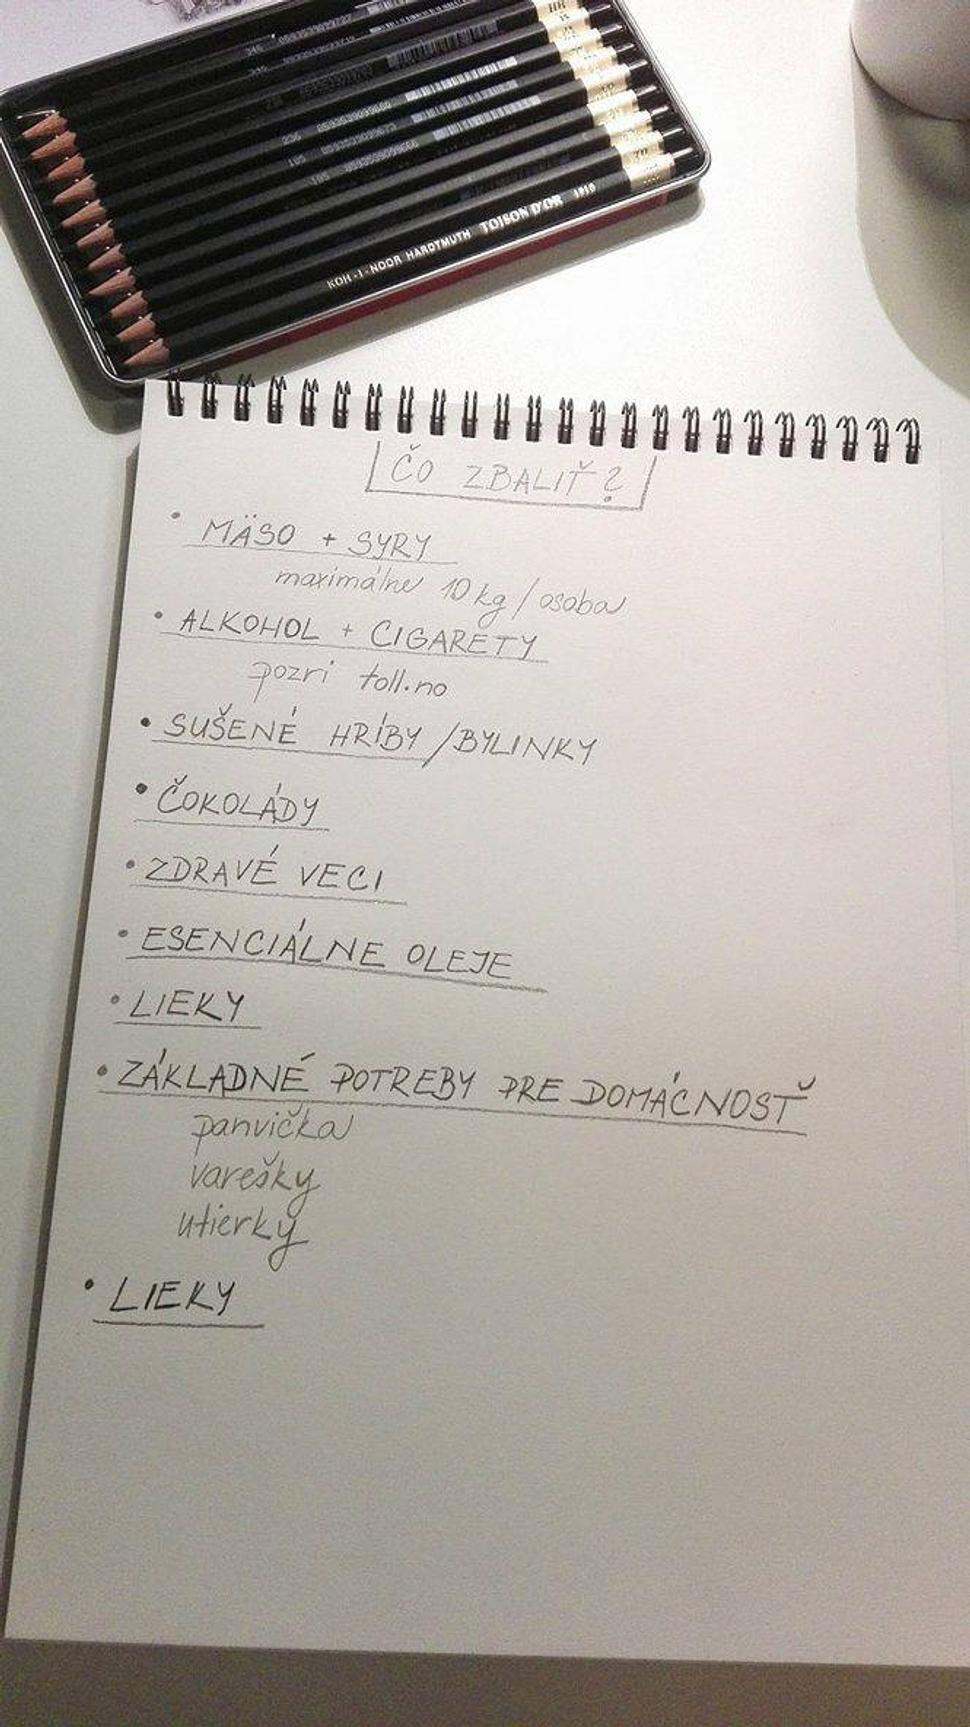 KOH-I-NOOR HARDTMUTH TOISON D'OR 1910
ČO ZBALIŤ?
• MÄSO + SYRY
maximálne 10 kg / osoba
• ALKOHOL + CIGARETY
pozri toll.no
• SUŠENÉ HRÍBY /BYLINKY
• ČOKOLÁDY
• ZDRAVÉ VECI
• ESENCIÁLNE OLEJE
• LIEKY
• ZÁKLADNÉ POTREBY PRE DOMÁCNOSŤ
panvička
varešky
utierky
• LIEKY